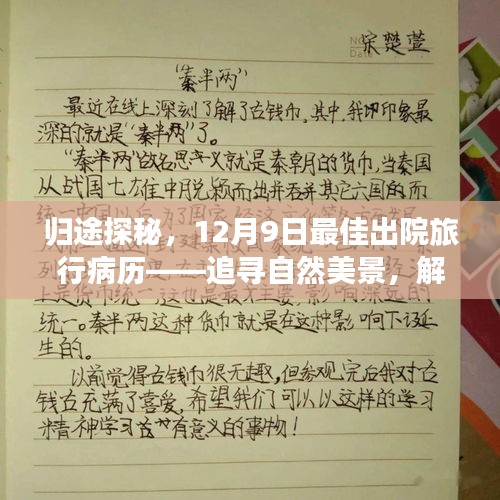 NO
Date
宋楚萱
“秦半两”
最近在线上深刻了解了古钱币,其中,我印象最
深的就是“秦半两”了。
“秦半两”顾名思义就是秦朝的货币,当秦国
从战国七雄中脱颖而出并吞并其它六国的而
归途探秘，12月9日最佳出院旅
行病历——追寻自然美景，解
统一。秦半两这种货币就是在这种影响下诞
生的。
以前觉得古钱币很无趣,但参观完后我对古
钱币充满了喜爱,希望我们可以以这样的学习
精神学习含有意义的事物!